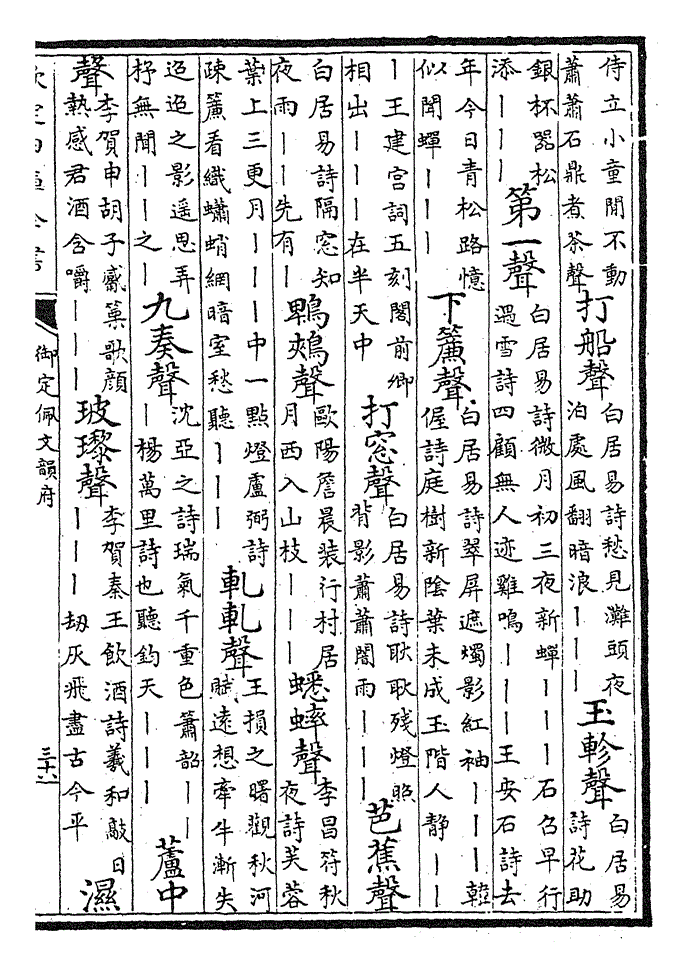 侍立小童閒不動
蕭蕭石鼎煮茶聲
打船聲
白居易詩愁見灘頭夜
泊處風翻暗浪｜｜｜
玉軫聲
白居易
詩花助
銀杯器松
添｜｜｜
第一聲
白居易詩微月初三夜新蟬｜｜｜石召早行
遇雪詩四顧無人迹雞鳴｜｜｜王安石詩去
年今日青松路憶
似聞蟬｜｜｜
下簾聲
白居易詩翠屏遮燭影紅袖｜｜｜韓
偓詩庭樹新陰葉未成玉階人靜｜｜
｜王建宮詞五刻閣前卿
相出｜｜｜在半天中
打窓聲
白居易詩耿耿残燈照
背影蕭蕭闇雨｜｜｜
芭蕉聲
白居易詩隔窓知
夜雨｜｜先有｜
鵯鵊聲
歐陽詹晨装行村居
月西入山枝｜｜｜
蟋蟀聲
李昌符秋
夜詩芙蓉
葉上三更月｜｜｜中一點燈盧弼詩
疎簾看織蠨蛸網暗室愁聽｜｜｜
軋軋聲
王損之曙觀秋河
賦遠想牽牛漸失
迢迢之影遥思弄
杼無聞｜｜之｜
九奏聲
沈亞之詩瑞氣千重色簫韶｜｜
｜楊萬里詩也聽鈞天｜｜｜
蘆中
聲
李賀申胡子觱篥歌顔
熱感君酒含嚼｜｜｜
玻瓈聲
李賀秦王飲酒詩羲和敲日
｜｜｜劫灰飛盡古今平
濕
欽定四庫全書
御定佩文韻府